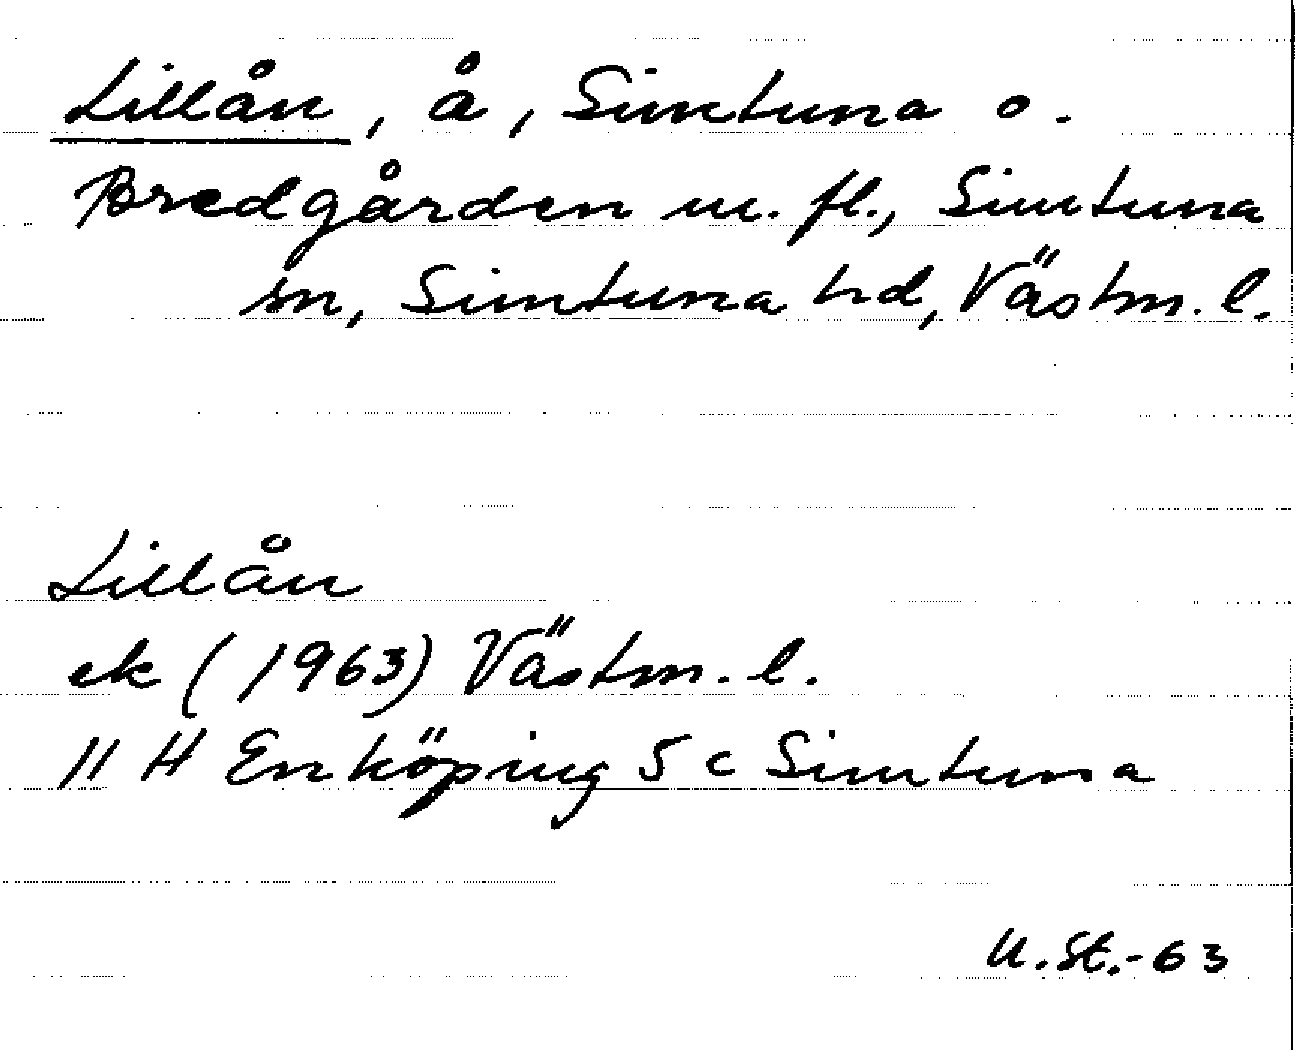 Lillån, å, Simtuna o.
Bredgården m. fl., Simtuna
sn, Simtuna hd, Västm. l.
Lillån
ek (1963) Västm. l.
11 H Enköping 5 c Simtuna
U. St.-63